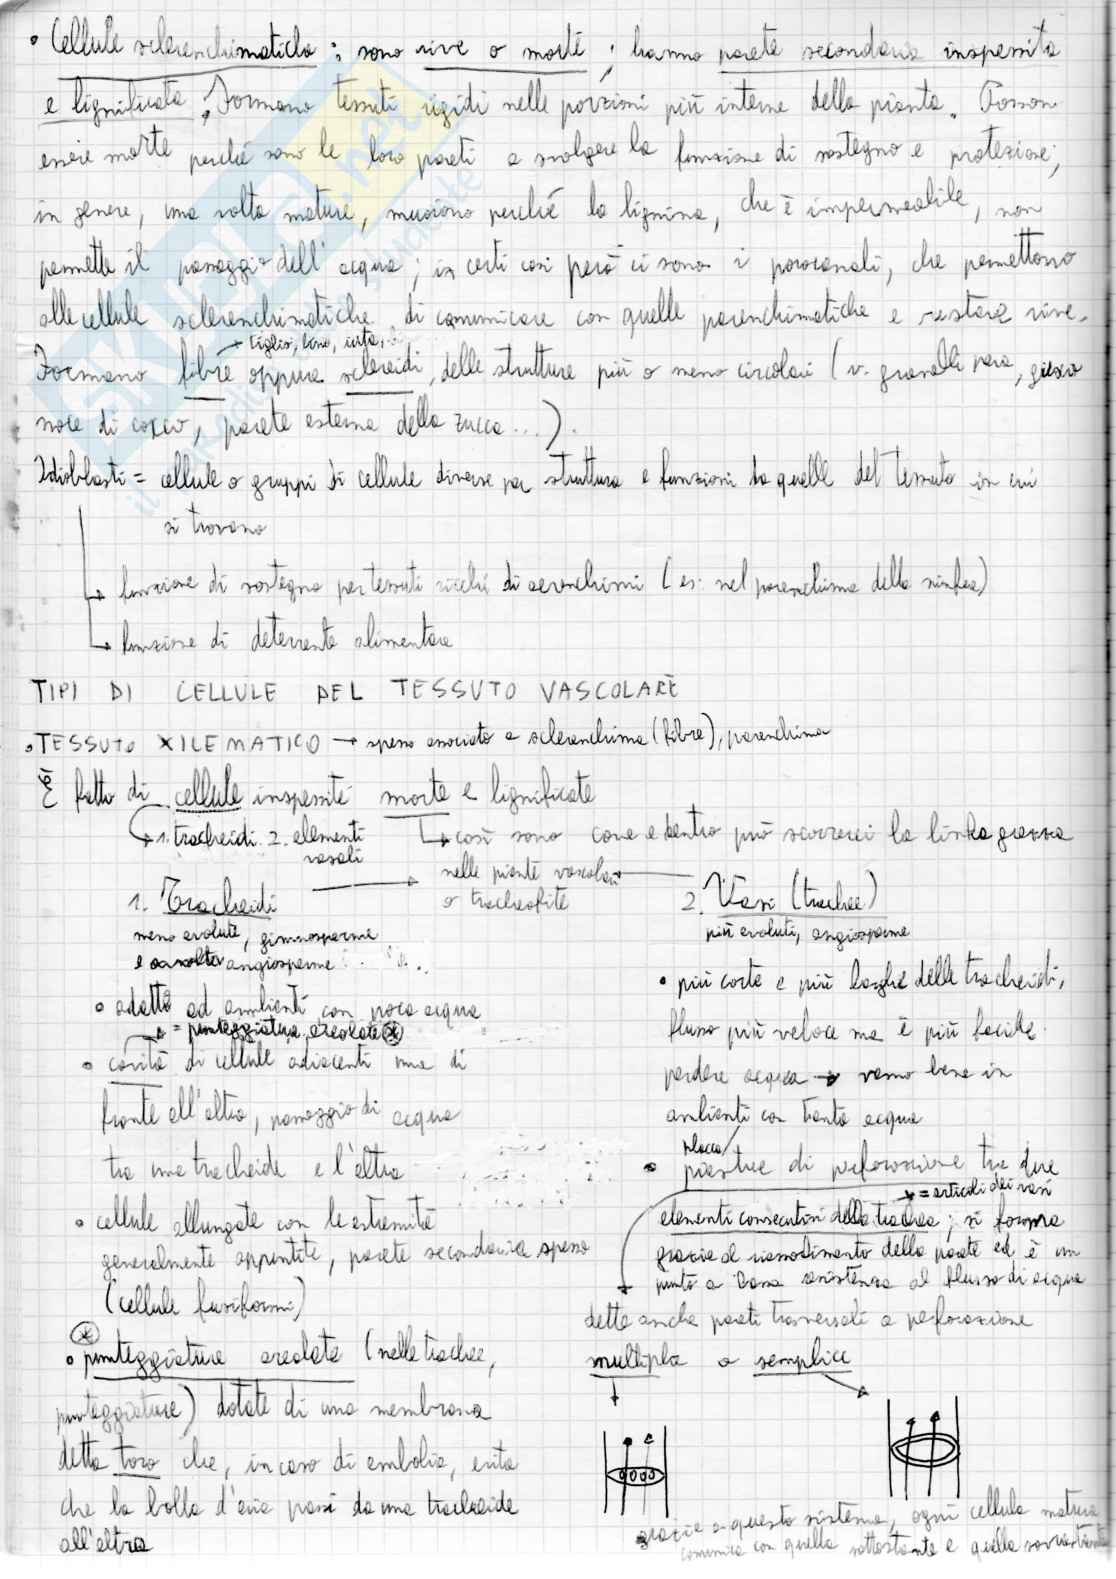 • Cellule sclerenchimatiche : sono vive o morte ; hanno parete secondaria inspessita
e lignificata. Formano tessuti rigidi nelle porzioni più interne della pianta. Possono
essere morte perché sono le loro pareti a svolgere la funzione di sostegno e protezione;
in genere, una volta mature, muoiono perché la lignina, che è impermeabile, non
permette il passaggio dell'acqua; in certi casi però ci sono i porocanali, che permettono
alle cellule sclerenchimatiche di comunicare con quelle parenchimatiche e restare vive.
→ tiglio, lino, iuta,
Formano fibre oppure sclereidi, delle strutture più o meno circolari (v. granelli pera, guscio
noce di cocco, parete esterna della zucca...).
Idioblasti = cellule o gruppi di cellule diverse per struttura e funzioni da quelle del tessuto in cui
si trovano
→ funzione di sostegno per tessuti ricchi di aerenchimi (es: nel parenchima della ninfea)
→ funzione di deterrente alimentare
TIPI DI CELLULE DEL TESSUTO VASCOLARE
• TESSUTO XILEMATICO → spesso associato a sclerenchima (fibre), parenchima
È fatto di cellule inspessite morte e lignificate
→ 1. tracheidi 2. elementi vasali
→ così sono cave e dentro può scorrerci la linfa grezza
nelle piante vascolari
o tracheofite
1. Tracheidi
meno evolute, gimnosperme
e a volte angiosperme
• adatte ad ambienti con poca acqua
→ = punteggiature areolate *
• cavità di cellule adiacenti una di
fronte all'altra, passaggio di acqua
tra una tracheide e l'altra
• cellule allungate con le estremità
generalmente appuntite, parete secondaria spessa
(cellule fusiformi)
*
• punteggiature areolate (nelle trachee,
punteggiature) dotate di una membrana
detta toro che, in caso di embolia, evita
che la bolla d'aria passi da una tracheide
all'altra
2. Vasi (trachee)
più evoluti, angiosperme
• più corte e più larghe delle tracheidi,
flusso più veloce ma è più facile
perdere acqua → vanno bene in
ambienti con tanta acqua
placca/
• piastre di perforazione tra due
→ = articoli dei vasi
elementi consecutivi della trachea ; si forma
grazie al riassorbimento della parete ed è un
punto a bassa resistenza al flusso di acqua
dette anche pareti trasversali a perforazione
multipla o semplice
grazie a questo sistema, ogni cellula matura
comunica con quella sottostante e quella sovrastante